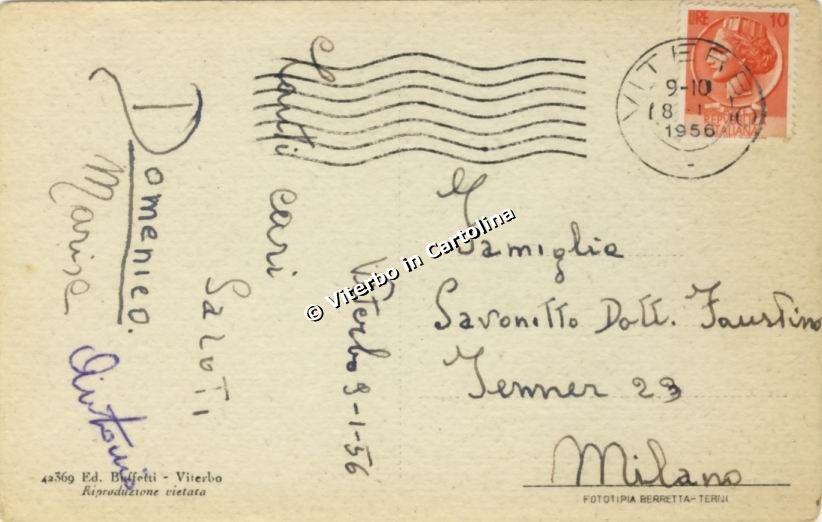 Viterbo 9-1-56
Tanti cari
Saluti
Domenico.
Marisa
Antonio
LIRE 10
REPUBBLICA
ITALIANA
VITERBO
9-10
1956
Famiglia
Savonitto Dott. Faustino
Jenner 23
Milano
© Viterbo in Cartolina
42369 Ed. Buffetti - Viterbo
Riproduzione vietata
FOTOTIPIA BERRETTA-TERNI